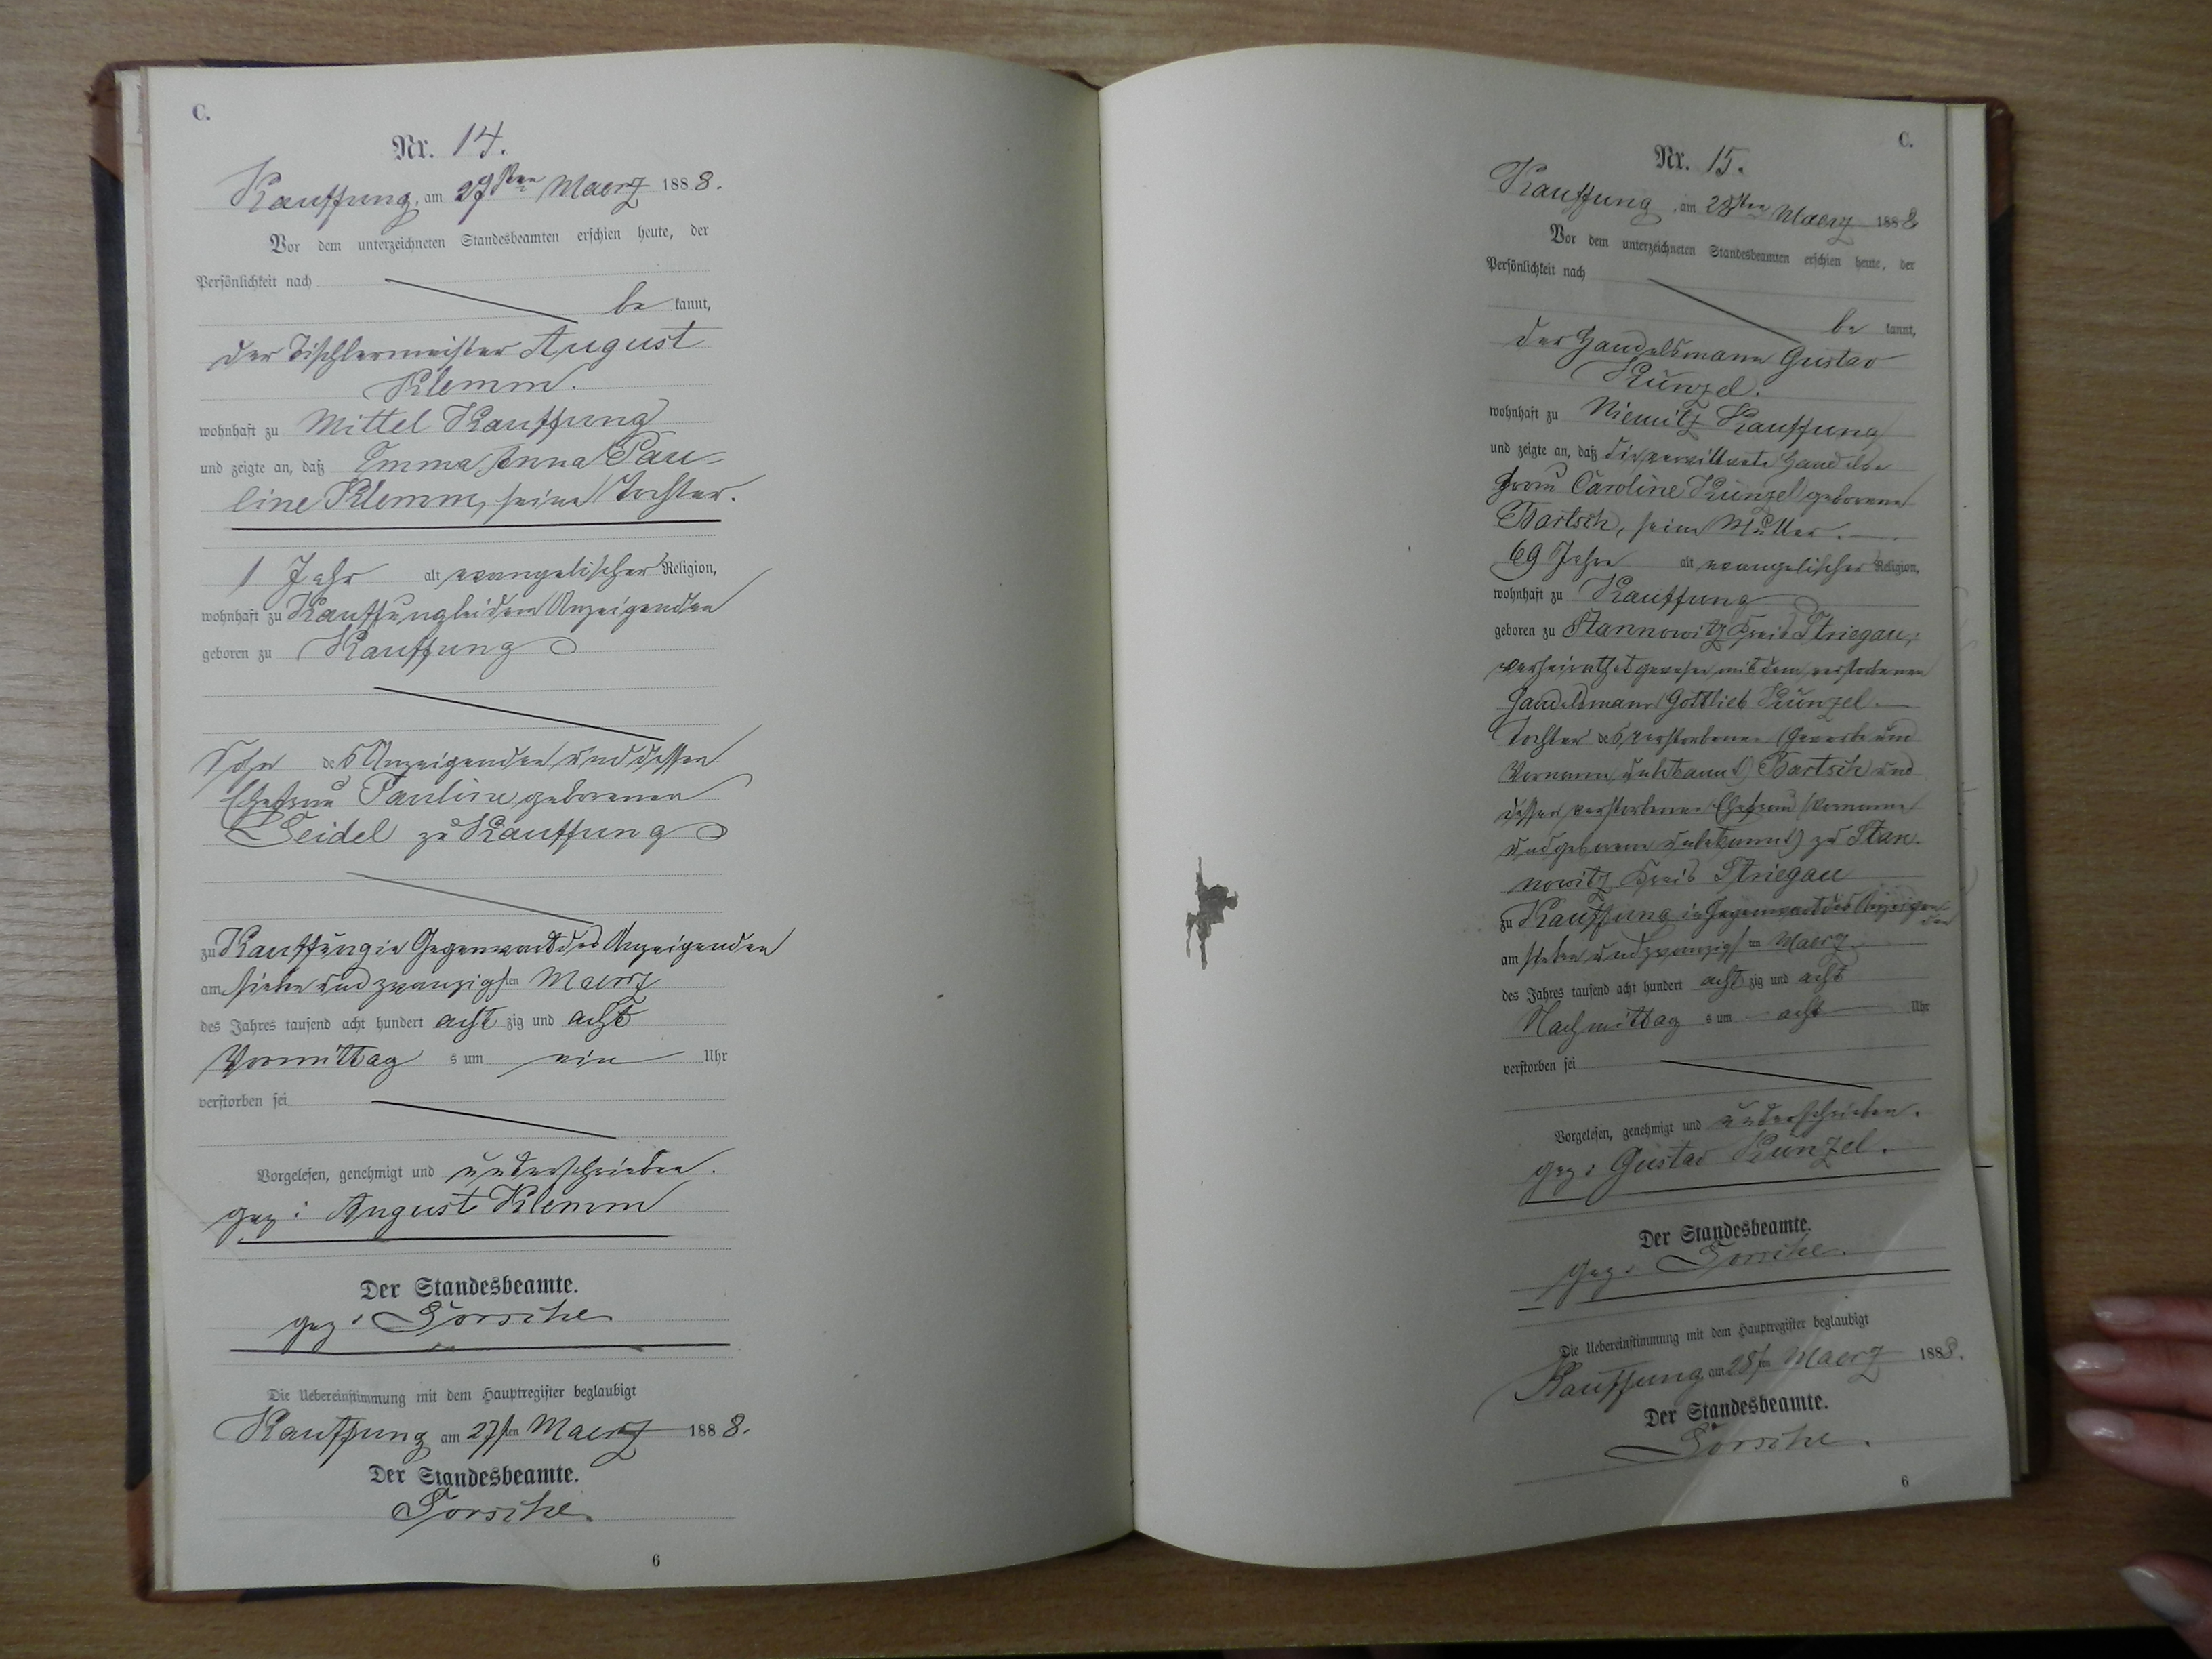 C.
Nr. 14.
Kauffung, am 27ten Maerz 1888.
Vor dem unterzeichneten Standesbeamten erschien heute, der
Persönlichkeit nach
be kannt,
der Tischlermeister August
Klemm.
wohnhaft zu Mittel Kauffung
und zeigte an, daß Emma Anna Pau-
line Klemm, seine Tochter.
1 Jahr alt evangelischer Religion,
wohnhaft zu Kauffung bei dem Anzeigenden
geboren zu Kauffung
des Anzeigenden und dessen
Ehefrau Pauline geborenen
Seidel zu Kauffung
zu Kauffung in Gegenwart des Anzeigenden
am sieben und zwanzigsten Maerz
des Jahres tausend acht hundert acht zig und acht
Vormittag s um ein Uhr
verstorben sei
Vorgelesen, genehmigt und unterschrieben.
gez: August Klemm
Der Standesbeamte.
gez:
Die Uebereinstimmung mit dem Hauptregister beglaubigt
Kauffung am 27ten Maerz 1888.
Der Standesbeamte.
6
C.
Nr. 15.
Kauffung, am 28ten Maerz 1888
Vor dem unterzeichneten Standesbeamten erschien heute, der
Persönlichkeit nach
be kannt,
der Handelsmann Gustav
Künzel.
wohnhaft zu Niemitz Kauffung
und zeigte an, daß die verwittwete Handels
frau Caroline Künzel geborene
Bartsch, seine Mutter.
69 Jahre alt evangelischer Religion,
wohnhaft zu Kauffung
geboren zu Stannowitz Kreis Striegau,
verheirathet gewesen mit dem verstorbenen
Handelsmann Gottlieb Künzel.
Tochter des verstorbenen (Gewerbe und
Vorname unbekannt) Bartsch und
dessen verstorbenen Ehefrau (Vorname
und geborene unbekannt) zu Stan-
nowitz Kreis Striegau
zu Kauffung in Gegenwart des Anzeigen-
den
am sieben und zwanzigsten Maerz
des Jahres tausend acht hundert acht zig und acht
Nachmittag s um acht Uhr
verstorben sei
Vorgelesen, genehmigt und unterschrieben.
gez: Gustav Künzel.
Der Standesbeamte.
gez:
Die Uebereinstimmung mit dem Hauptregister beglaubigt
Kauffung am 28ten Maerz 1888.
Der Standesbeamte.
6